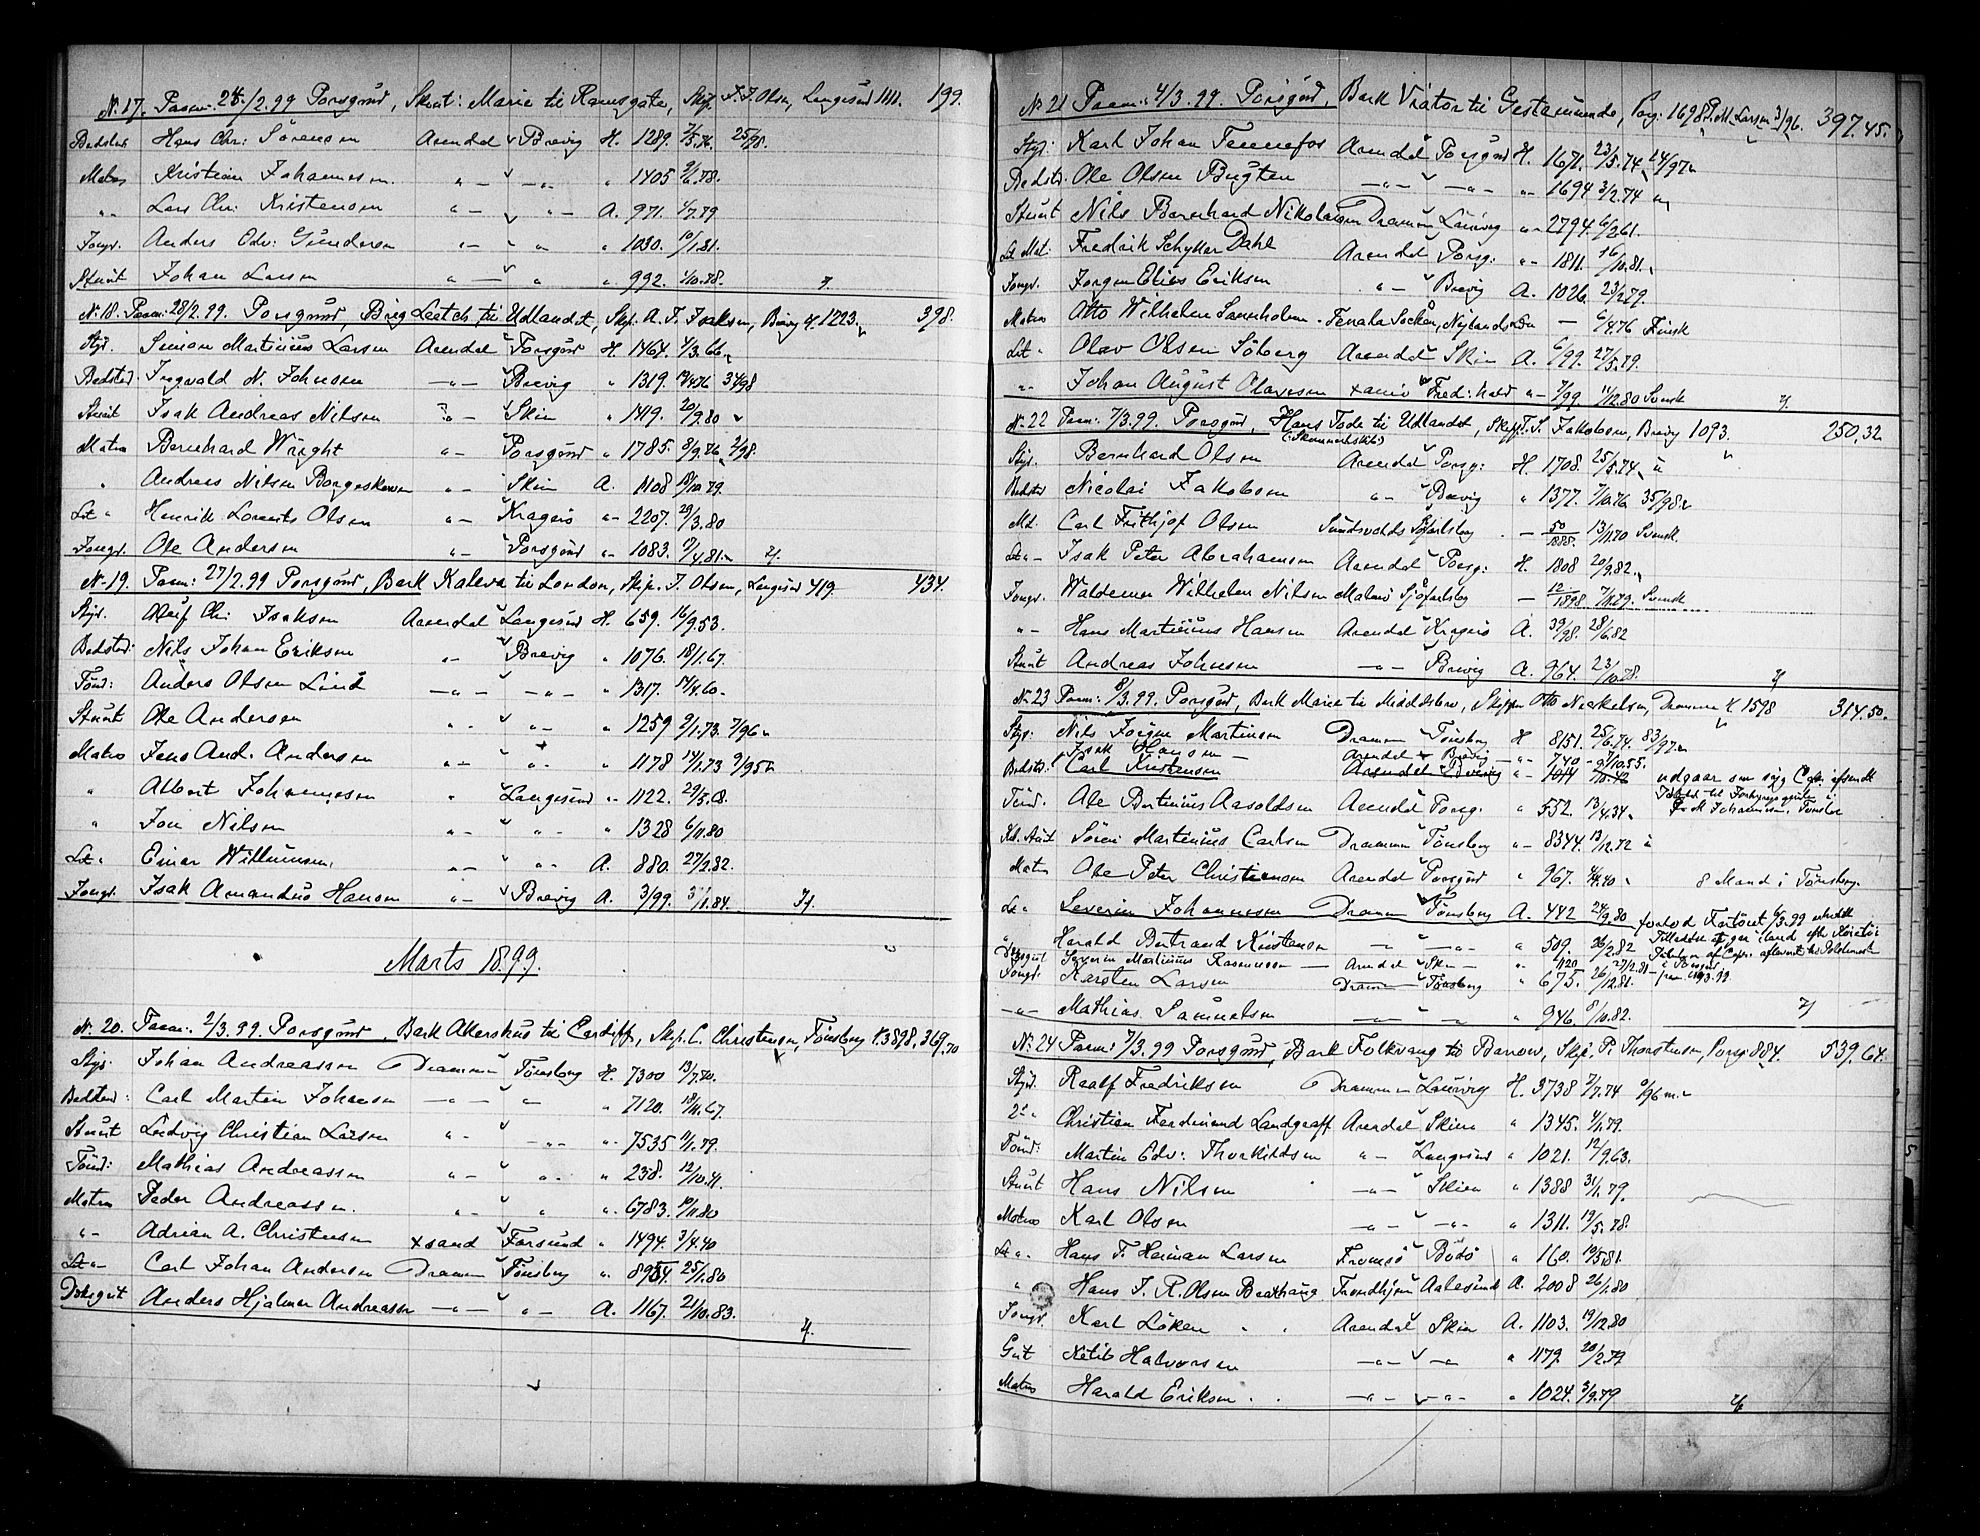 N. 17. Paam: 24/2.99 Porsgrund, Skont: Marie til Ramsgate, Skip. T. T. Olsen, Langesund 1111. 199.
Bedstm Hans Chr: Sörensen Arendal Brevig H. 1289. 25/98.
Matros Kristian Johannesen " — " — " 1405
" - Lars Chr: Kristensen " — " — A. 971. 4/7.79
Jungm. Anders Edv: Gundersen " — " " 1030. 10/1.81.
Stuert Johan Larsen " — " " 992. 1/10.78.
N. 18. Paam: 28/2.99. Porsgrund, Brig Leetch til Udlandet, Skip. A. T. Isaksen, Brevig H. 1223. 398.
Styr. Simon Martinius Larsen Arendal Porsgrund H. 1464. 4/3.66.
Bedstm. Ingvald N. Johnsen — " — Brevig " 1319. 34/98
Stuert Isak Andreas Nilsen " — Skien " 1419. 20/9.80
Matros Bernhard Wright " — Porsgrund " 1785. 8/9.76. 2/98.
" Andreas Nilsen Borgeskaven " — Skien A. 1108 19/10.79.
Let " Henrik Lorents Olsen " — Kragerö " - 2207. 29/3.80
Jungm. Ole Andersen " — Porsgrund " - 1083. 9/4.81.
N. 19. Paam: 27/2.99 Porsgrund, Bark Kaleva til London, Skip. J. Olsen, Langesund 419. 434.
Styr. Chr: Isaksen Arendal Langesund H. 659. 16/9.53.
Bedstm: Nils Johan Eriksen " - Brevig " 1076. 18/1.67.
Tömd: Anders Olsen Lind — " — — " — " 1317. 14/4.60.
Stuert Ole Andersen " - " - " 1259 9/1.73. 7/96
Matros Jens And. Andersen " - " - " 1178 14/1.73 9/95
" Albert Johannesen " Langesund " - 1122.
" Jon Nilsen " - " - " 1328 6/11.80
Let " Einar Willumsen. " - " - A. 880. 27/2.82.
Jungm. Isak Amandus Hansen " - Brevig A. 3/99. 31/1.84.
Marts 1899.
N. 20. Paam: 2/3.99. Porsgrund, Bark Akershus til Cardiff, Skip. C. Christensen, Tönsberg H. 3898. 369.70
Styr. Johan Andreassen Drammen Tönsberg H. 7300 13/7.70.
Bedstm: Carl Martin Johansen — " — " — " 7120. 18/11.67.
Stuert Ludvig Christian Larsen " - — " - " - 7535 11/1.79.
Tömd: Mathias Andreassen " - " - " - 238. 12/10.41.
Matros Peder Andreassen. " - " " - 6783. 19/11.80
" - Adrian A. Christensen xsand Farsund " 1494. 3/4.40
Let " - Carl Johan Andersen Drammen Tönsberg " 25/1.80
Dæksgut Anders Hjalmar Andreassen — " — " — A. 1167. 21/10.83.
N. 21 Paam: 4/3.99. Porsgrund, Bark Viator til Gestemünde, Porsg: 1698. P. M. Larsen 3/96. 397.45.
Styr: Karl Johan Tannefos Arendal Porsgrund H. 1671. 23/5.74 24/97
Bedstm. Ole Olsen Bugten — " — — " — " - 1694 3/2.74
Stuert Nils Bernhard Nikolaisen Drammen Laurvig " - 2794. 6/2.61.
Let Mat. Fredrik Schytter Dahl Arendal Porsg: " - 1811. 16/10.81.
Jungm. Jörgen Elias Eriksen " - Brevig A. 1026. 23/2.79.
Matros Otto Wilhelm Sannholm. Tenala Socken, Nylands Län — 6/4.76 Finsk
Let " Olav Olsen Söberg Arendal Skien A. 6/99. 27/5.79.
" - Johan August Olavesen xania Fredr:hald " - 7/99. 11/12.80 Svensk
N. 22 Paam: 7/3.99. Porsgrund, Hans Tode til Udlandet, Skipp. T. S. Jakobsen, Brevig 1093. 250,32
(Skonnertskib)
Styr. Bernhard Olsen Arendal Porsg: H. 1708. 25/5.74.
Bedstm Nicolai Jakobsen " - Brevig " 1377. 7/10.76. 35/98.
Mt. Carl Frithjof Olsen Sundsvalds Sjöfartsbog — 50/1885. 13/11.70 Svensk
Let " - Isak Peter Abrahamsen Arendal Porsg: H. 1808 20/9.82.
Jungm. Waldemar Wilhelm Nilsen Malmö Sjöfartsbog — 12/1898. 7/11.79. Svensk
" - Hans Martinius Hansen Arendal Kragerö A. 39/98. 28/6.82
Stuert Andreas Johnsen — " — Brevig A. 964. 23/10.78.
N. 23 Paam: 8/3.99. Porsgrund, Bark Marie til Middelsbro, Skipper Otto Mickelsen, Drammen H. 1598 314.50.
Styr. Nils Jörgen Martinsen Drammen Tönsberg H 8151. 25/6.74. 83/97.
Isak Hansen — Arendal Brevig — " - 740 - 27/10.55.
Bedstm. Carl Kristensen Arendal Brevig " - 1014 7/10.42 udgaar som syg
Tömd. Ole Bertinius Aasoldsen Arendal Porsg. " 552. 13/4.34.
Kok Stuert Sören Martinius Carlsen Drammen Tönsberg " - 8344. 13/12.72
Matros Ole Peter Christensen Arendal Porsgrund " 967. 4/4.40 8 Mand i Tönsberg.
Let " Severin Johannesen Drammen Tönsberg A. 442 24/9.80 forlod Fartöiet 6/3.99
" Harald Bertrand Kristensen — " — — " — " 509. 26/2.82
Dæksgut Severin Martinius Rasmussen — Arendal Skien — " - 1120 27/2.81
Jungm. Karsten Larsen Drammen Tönsberg " 675. 26/12.81.
— " — Mathias Samuelsen — " — " — " 946. 8/10.82.
N. 24 Paam: 7/3.99 Porsgrund, Bark Folkvang til Barrow, Skip. P. Thorstensen, Porsg: 884. 539.64.
Styr. Roalf Fredriksen Drammen Laurvig H. 3738 7/7.74 9/96
2d " Christian Ferdinand Landgraff Arendal Skien " 1345. 4/1.79.
Tömd: Martin Edv: Thorkildsen " - Langesund " 1021. 12/9.63.
Stuert Hans Nilsen — " — Skien " 1388 31/1.79.
Matros Karl Olsen — " — — " - " 1311. 19/5.78.
Let " - Hans T. Herman Larsen Tromsö Bodö " 160. 19/5.81.
" Hans J. R. Olsen Braxhaug Trondhjem Aalesund A. 2008 26/1.80
Jungm. Karl Löken Arendal Skien A. 1103. 19/12.80
Gut Ketil Halvorsen — " — — " — " 1179. 20/2.79
Matros Harald Eriksen — " — — " - " 1024. 3/9.79